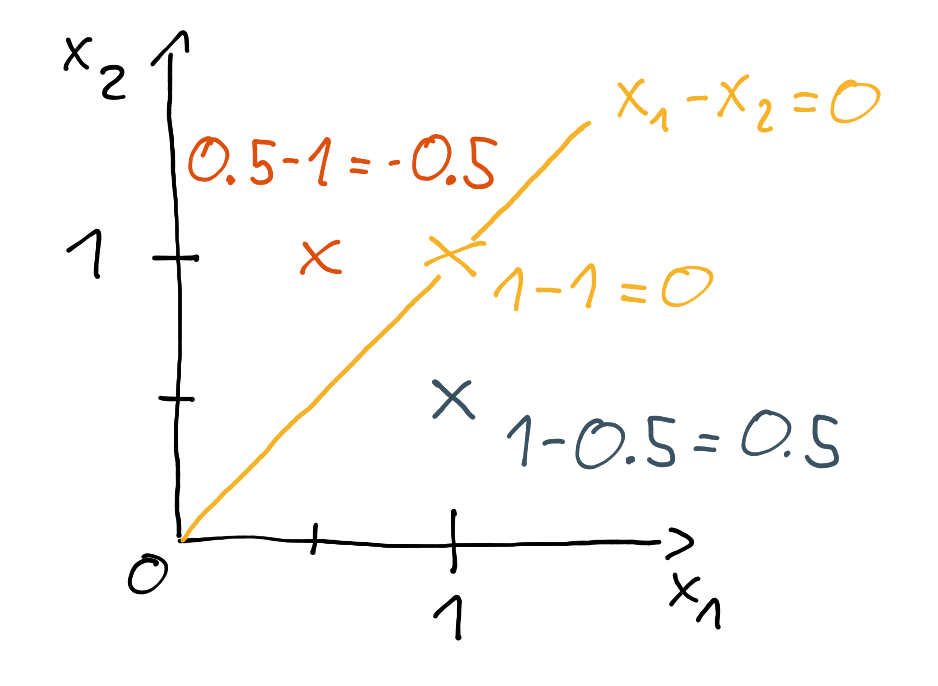 x₂
x₁-x₂=0
0.5-1=-0.5
1
1-1=0
1-0.5=0.5
0
1
x₁